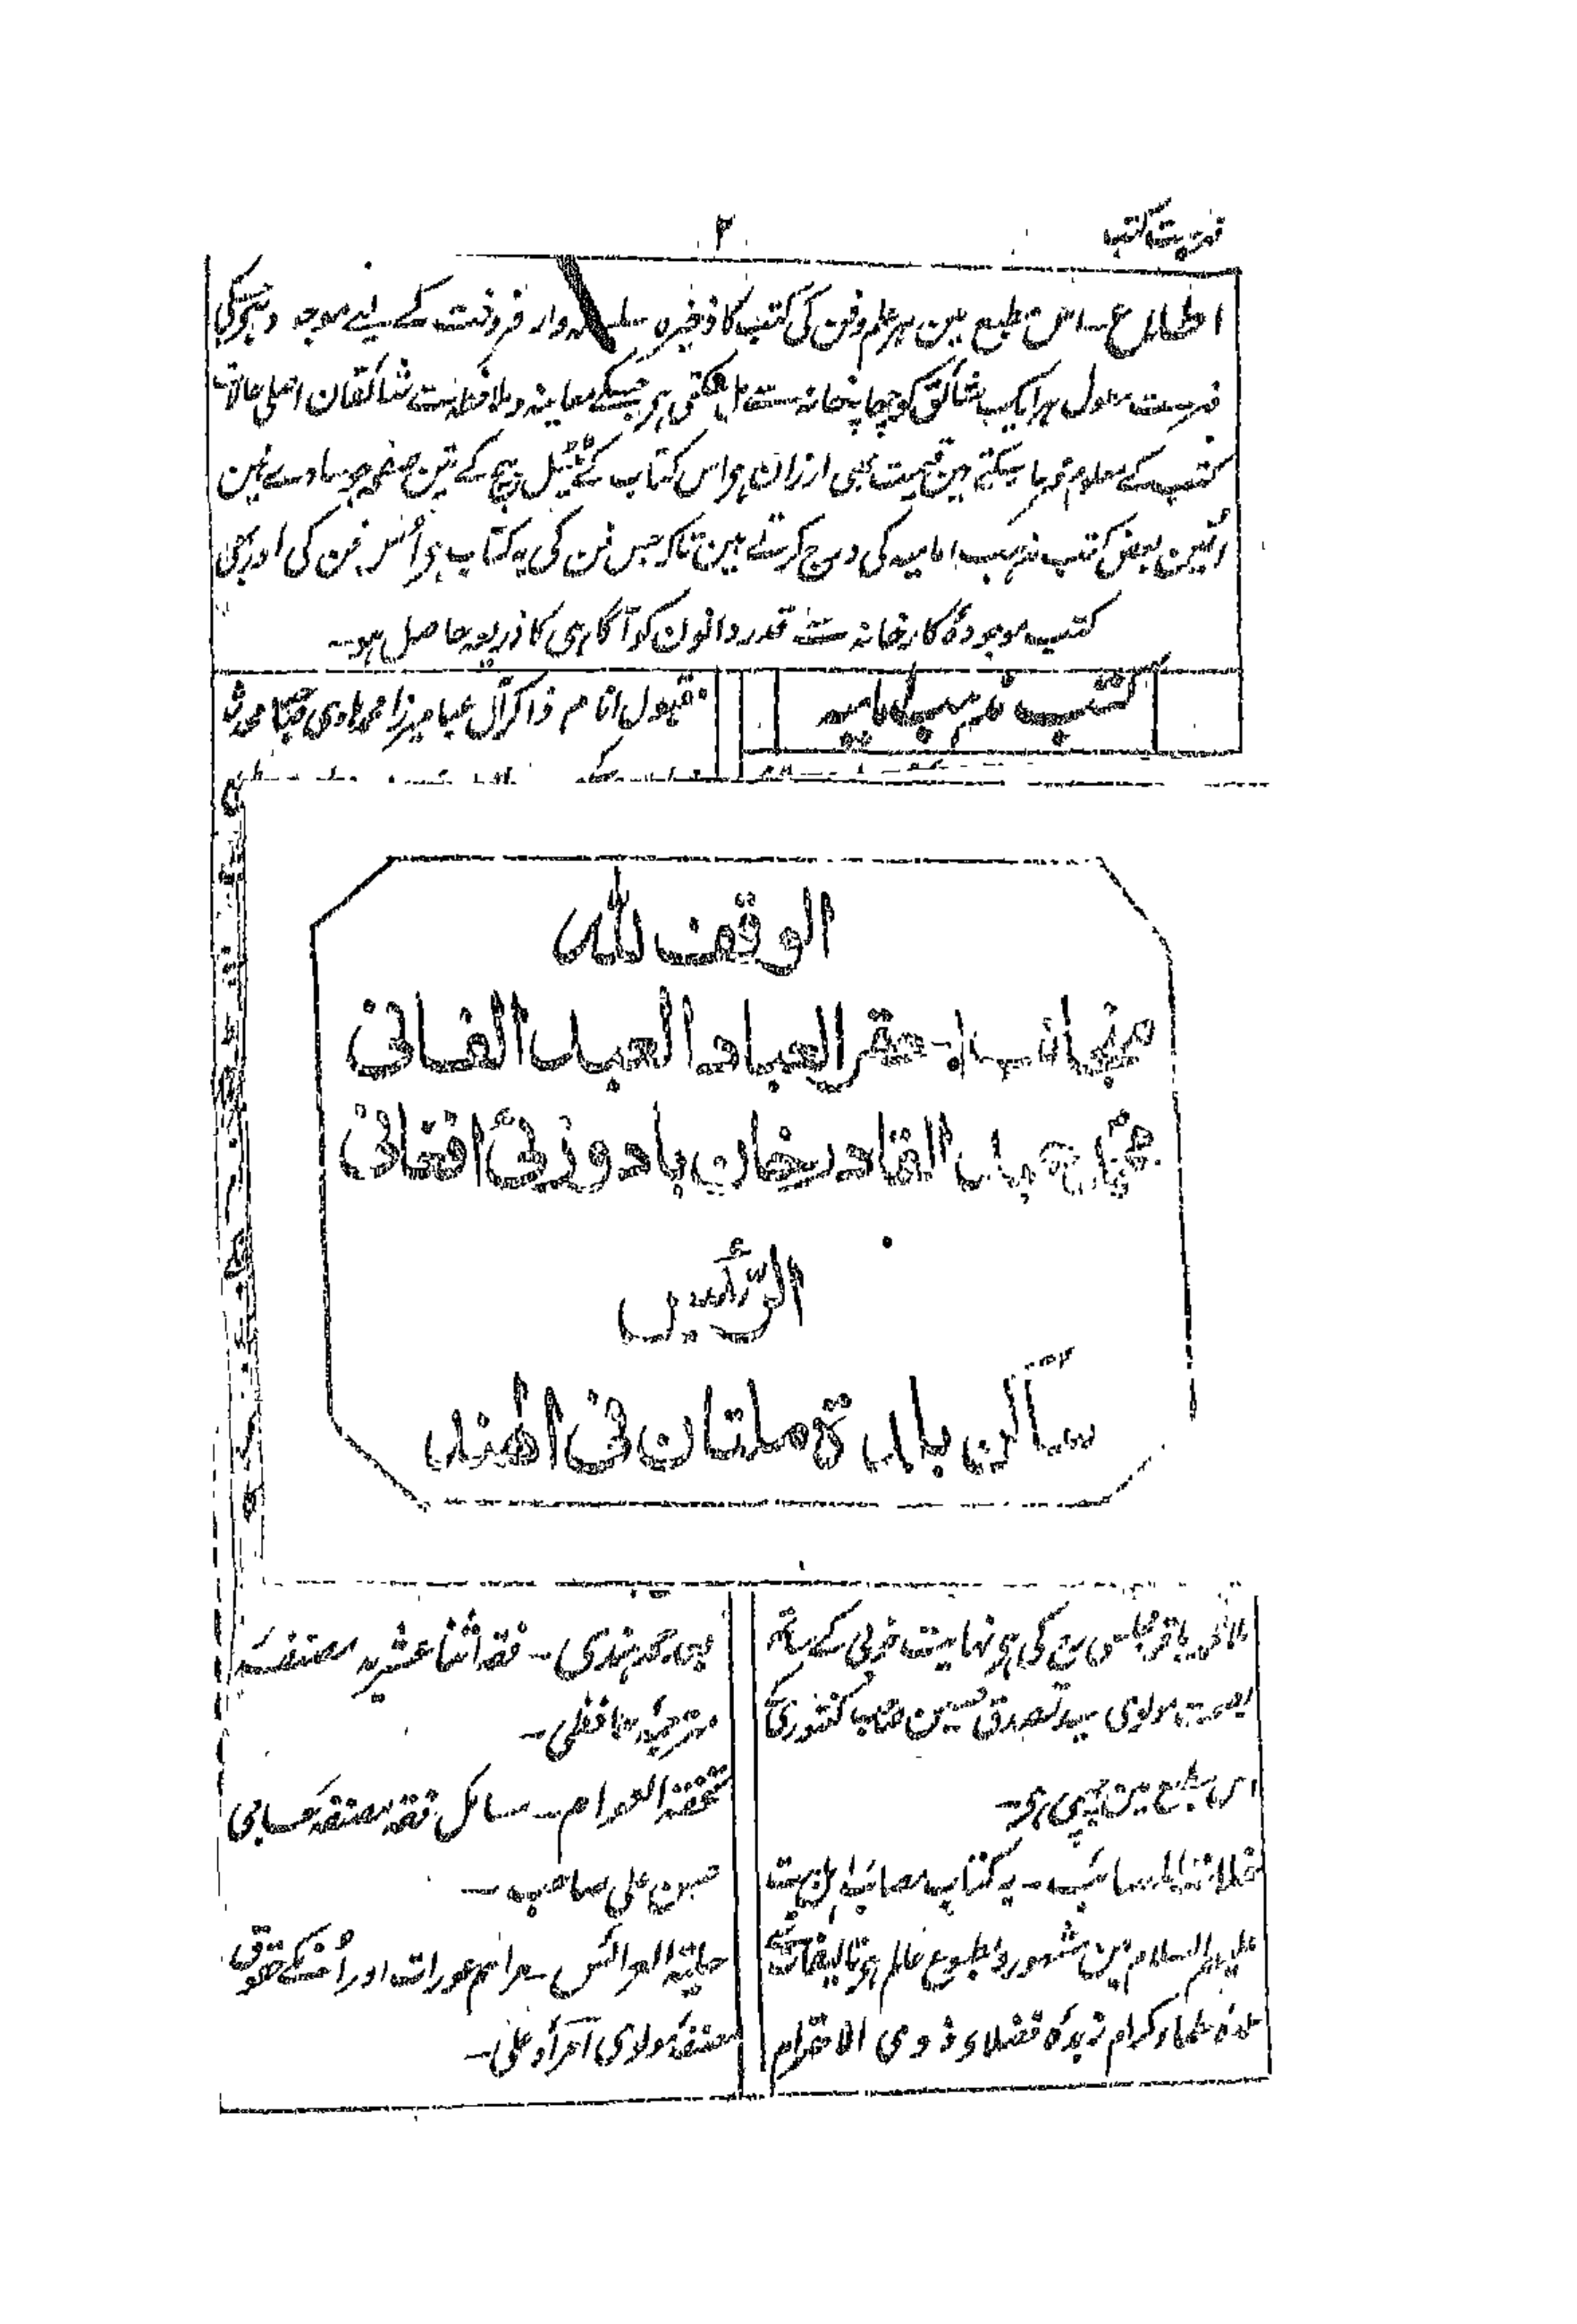 فہرست کتب
۲
اطلاع۔ اس مطبع مین ہر علم وفن کی کتب کا ذخیرہ سلسلہ وار فروخت کے لیے موجود ہی جسکی
فہرست مطول ہر ایک شائق کو چھاپہ خانہ سے مل سکتی ہی جسکے معاینہ و ملاحظہ سے شائقان اصلی حالات
کتب کے معلوم فرما سکتے ہین قیمت بھی ارزان ہی اس کتاب کے ٹیٹل پیج کے تین صفحہ جو سادے ہین
اُنمین بعض کتب مذہب امامیہ کی درج کرتے ہین تاکہ جس فن کی یہ کتاب ہی اُس فن کی اور بھی
کتب موجودۂ کارخانہ سے قدردانون کو آگاہی کا ذریعہ حاصل ہو۔
کتب مذہب امامیہ
مقبول انام ذاکر آل عبا میرزا محمد ہادی صاحب
الوقف للہ
منجانب احقر العباد العبد الفانی
عبد القادر خان بادوزئی افغانی
الرّئیس
ساکن بلدۃ ملتان فی الھند
ملا محمد باقر مجلسی رح کی ہی نہایت خوبی کے ساتھ
بصحت مولوی سید تصدق حسین صاحب کنتوری کے
اس مطبع مین چھپی ہی۔
خلاصۃ المصائب۔ یہ کتاب مصائب اہل بیت
علیہم السلام مین مشہور و مطبوع عالم ہی تالیفات سے
عمدہ علماء کرام زبدۂ فضلاء ذوی الاحترام
جامع ہندی۔ فقہ اثنا عشریہ مصنفہ
مترجمۂ
تحفۃ العوام۔ مسائل فقہ مصنفۂ حاجی
حسن علی صاحب۔
حلیۃ العرائس۔ مراسم عورات اور اُنکے حقوق
مصنفۂ مولوی امداد علی۔